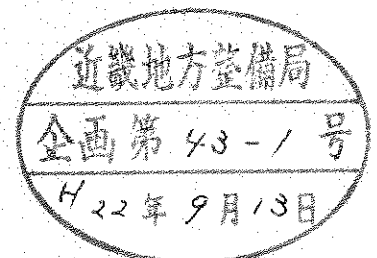 近畿地方整備局
企画第 43-1 号
H22年9月13日